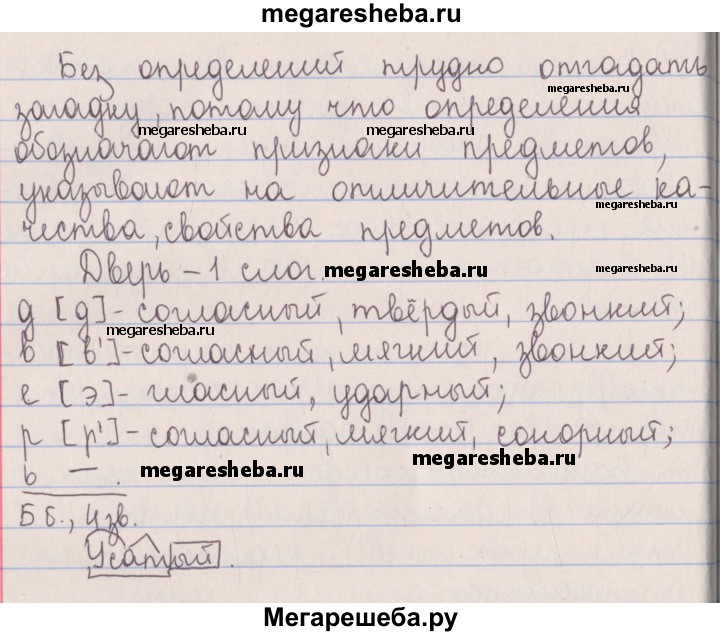 megaresheba.ru
Без определений трудно отгадать
megaresheba.ru
загадку, потому что определения
megaresheba.ru megaresheba.ru
обозначают признаки предметов,
указывают на отличительные ка-
megaresheba.ru
чества, свойства предметов.
Дверь – 1 слог. megaresheba.ru megaresheba.ru
д [д] - согласный, твёрдый, звонкий;
megaresheba.ru
в [в'] - согласный, мягкий, звонкий;
е [э] - гласный, ударный;
р [р'] - согласный, мягкий, сонорный;
megaresheba.ru
ь —. megaresheba.ru
5 б., 4 зв.
Усатый.
megaresheba.ru
Мегарешеба.ру